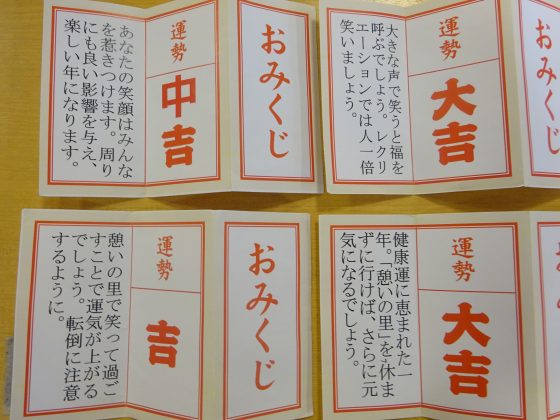 おみくじ
運勢
中吉
あなたの笑顔はみんな
を惹きつけます。周り
にも良い影響を与え、
楽しい年になります。
おみくじ
運勢
大吉
大きな声で笑うと福を
呼ぶでしょう。レクリ
エーションでは人一倍
笑いましょう。
おみくじ
運勢
吉
憩いの里で笑って過ご
すことで運気が上がる
でしょう。転倒に注意
するように。
おみくじ
運勢
大吉
健康運に恵まれた一
年。「憩いの里」を休ま
ずに行けば、さらに元
気になるでしょう。